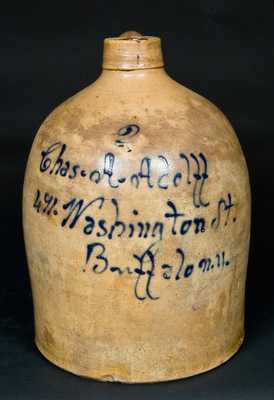 2
Chas. A. Adolff
471. Washington St.
Buffalo n.y.